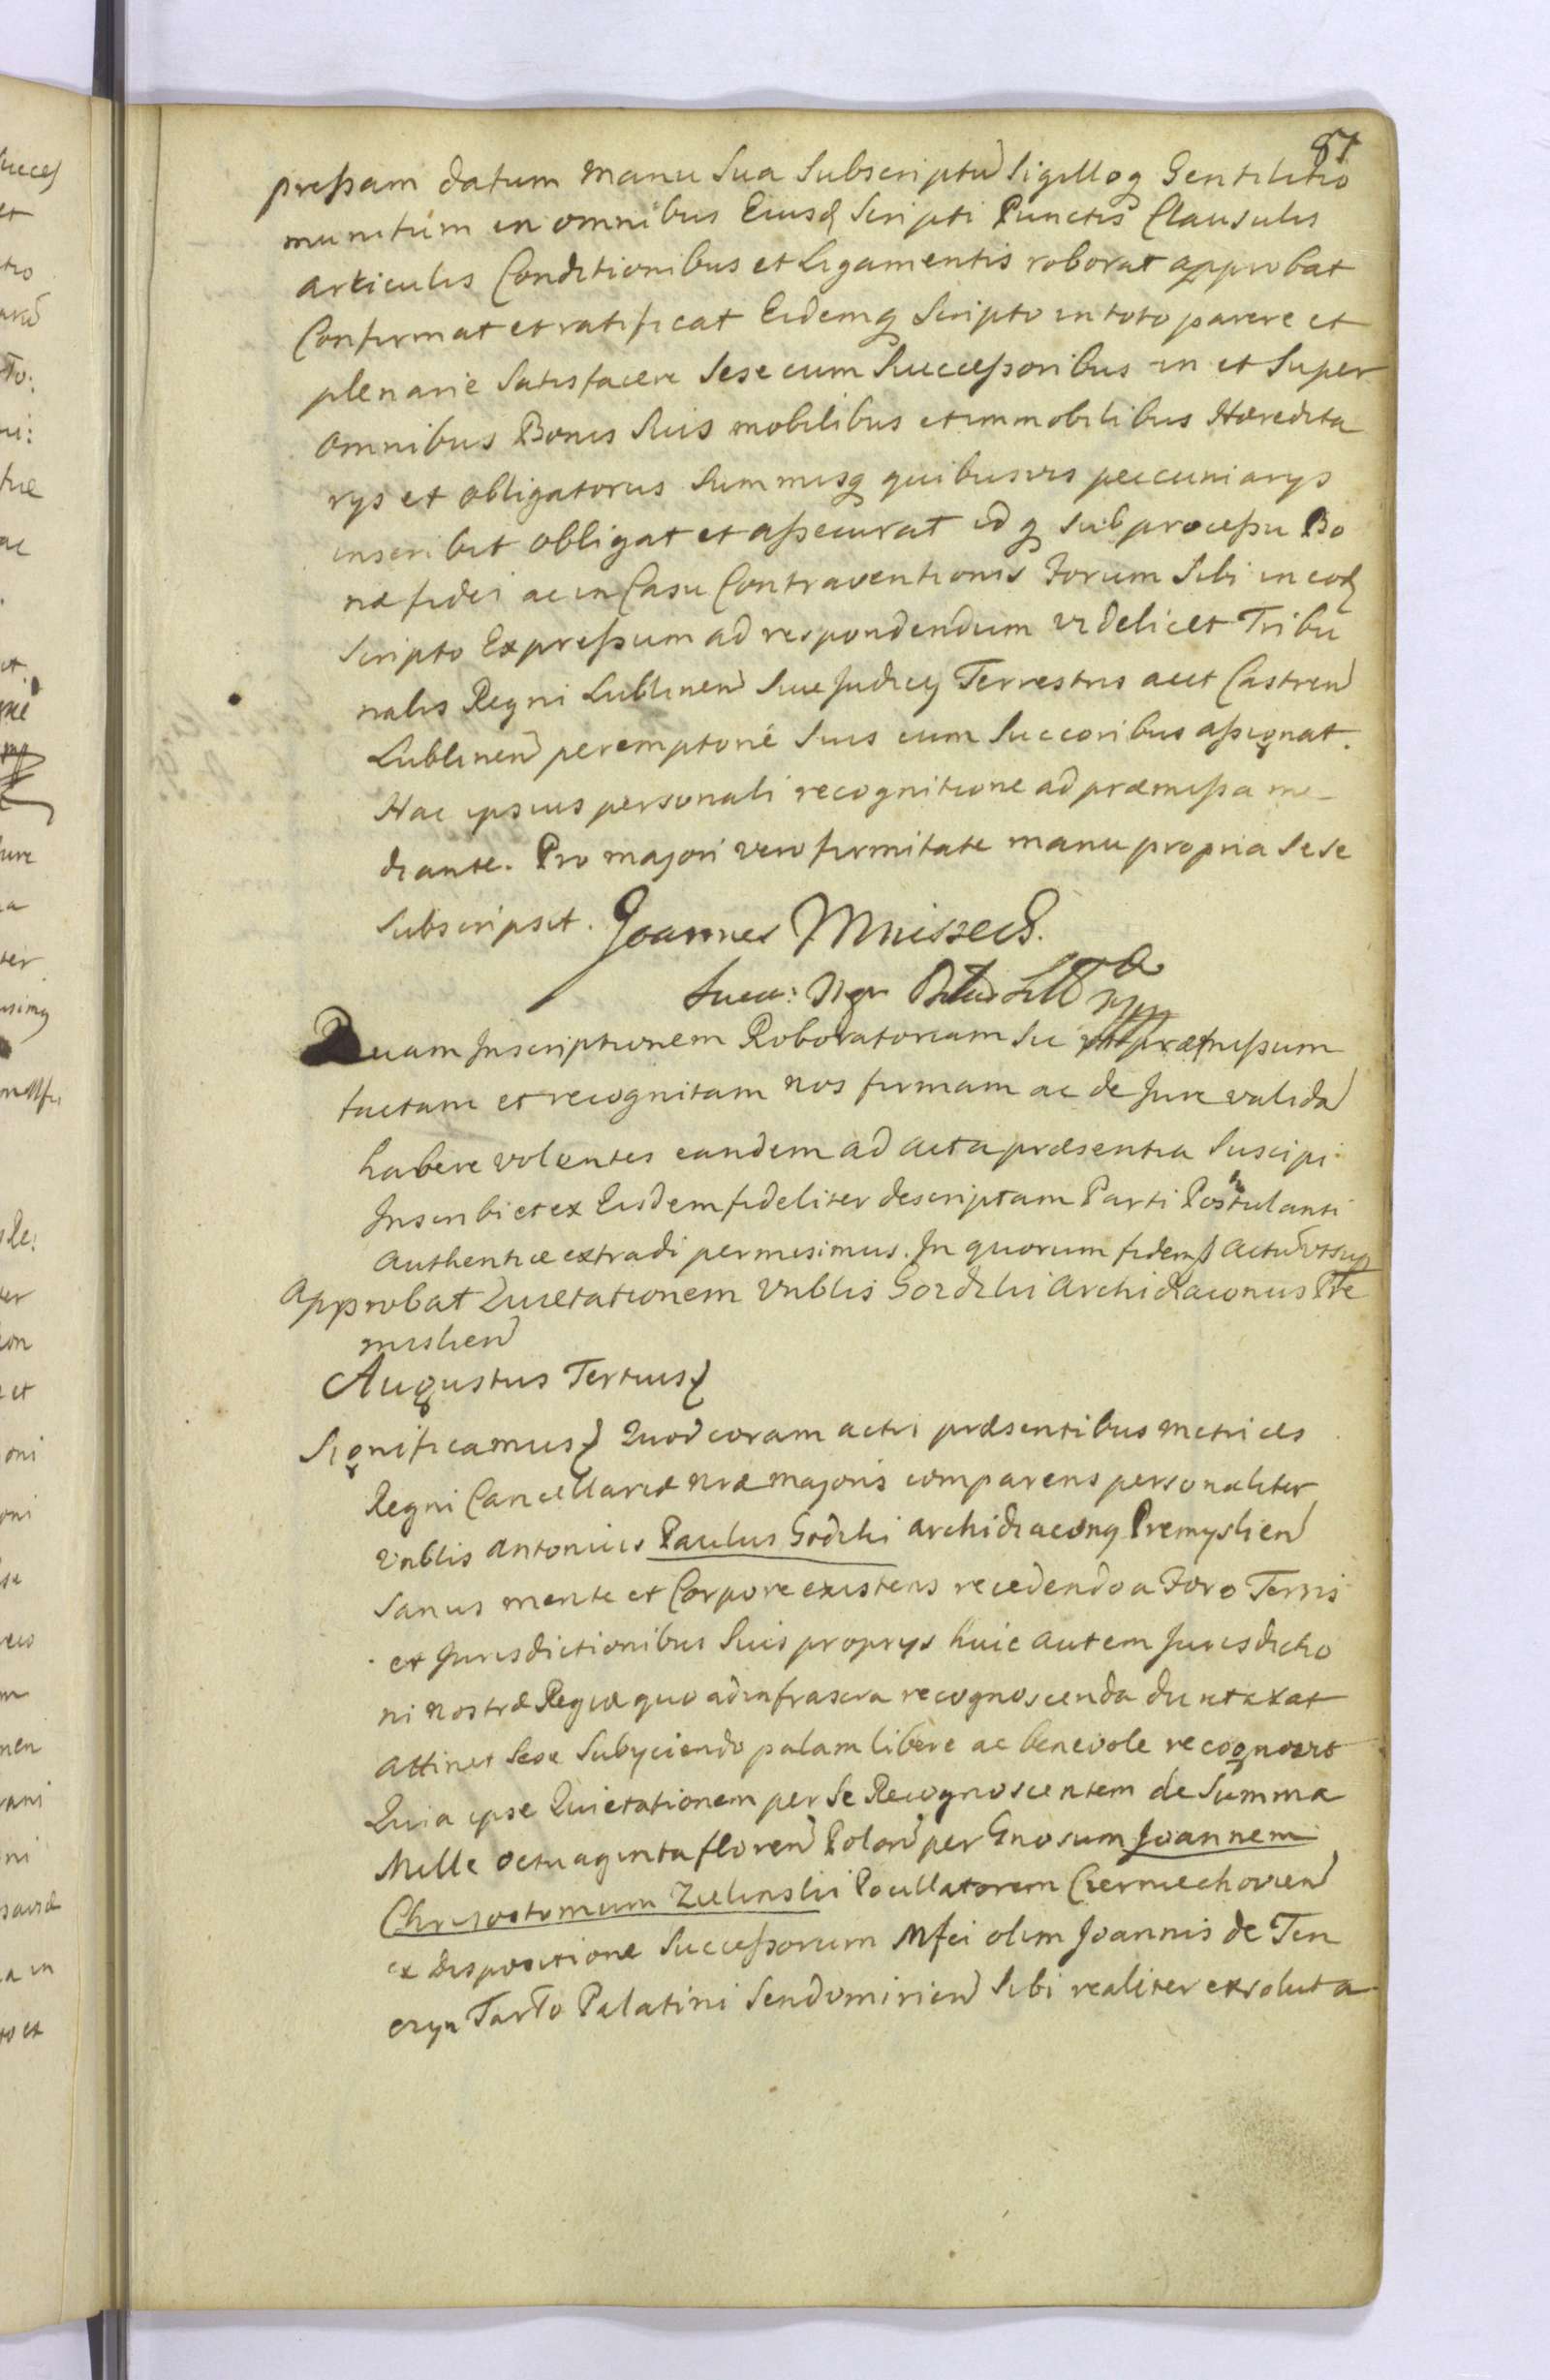 87
pressam datum manu Sua Subscriptu Sigilloq Gentilitio
munitum in omnibus Eiusd Scripti Punctis Clausulis
articulis Conditionibus et Ligamentis roborat approbat
Confirmat et ratificat Eidemq Scripto in toto parere et
plenarie Satisfacere Sese cum Successoribus in et Super
omnibus Bonis Suis mobilibus et immobilibus Hæredita
rys et obligatorus Summisq quibusvis peccuniarys
inscribit obligat et assecurat idq sub processu Bo
næ fidei ac in Casu Contraventionis Forum Sibi in eod
Scripto Expressum ad respondendum videlicet Tribu
nalis Regni Lublinen Sive Judicy Terrestris aut Castren
Lublinen peremptorié Suis cum Succoribus assignat.
Hac ipsius personali recognitione ad præmissa me
diante. Pro majori vero firmitate manu propria Sese
Subscripsit. Joannes Mniszech.
Quam Inscriptionem Roboratoriam Sic præmissum
factam et recognitam nos firmam ac de Jure valida
habere volentes eandem ad acta præsentia Suscipi
Inscribi et ex Eisdem fideliter descriptam Parti Postulanti
authentice extradi permisimus. In quorum fidem actu utsup
Approbat Quietationem Vnblis Gozdzki Archidiaconus Pre
mislien
Augustus Tertius
Significamus Quod coram actis præsentibus metrices
Regni Cancellariæ nræ majoris comparens personaliter
Vnblis Antonius Paulus Godzki archidiaconq Premyslien
Sanus mente et Corpore existens recedendo a Foro Terris
et Jurisdictionibus Suis proprys huic autem Jurisdictio
ni nostræ Regiæ quo ad infrascra recognoscenda duntaxat
attinet Sese Subyciendo palam libere ac benevole recognovit
Quia ipse Quietationem per Se Recognoscentem de Summa
Mille octuaginta floren Polon per Gnosum Joannem
Chrysostomum Zielinski Pocillatorem Czerniechovien
ex dispositione Successorum Mfci olim Joannis de Ten
czyn Tarło Palatini Sendomirien Sibi realiter exsoluta